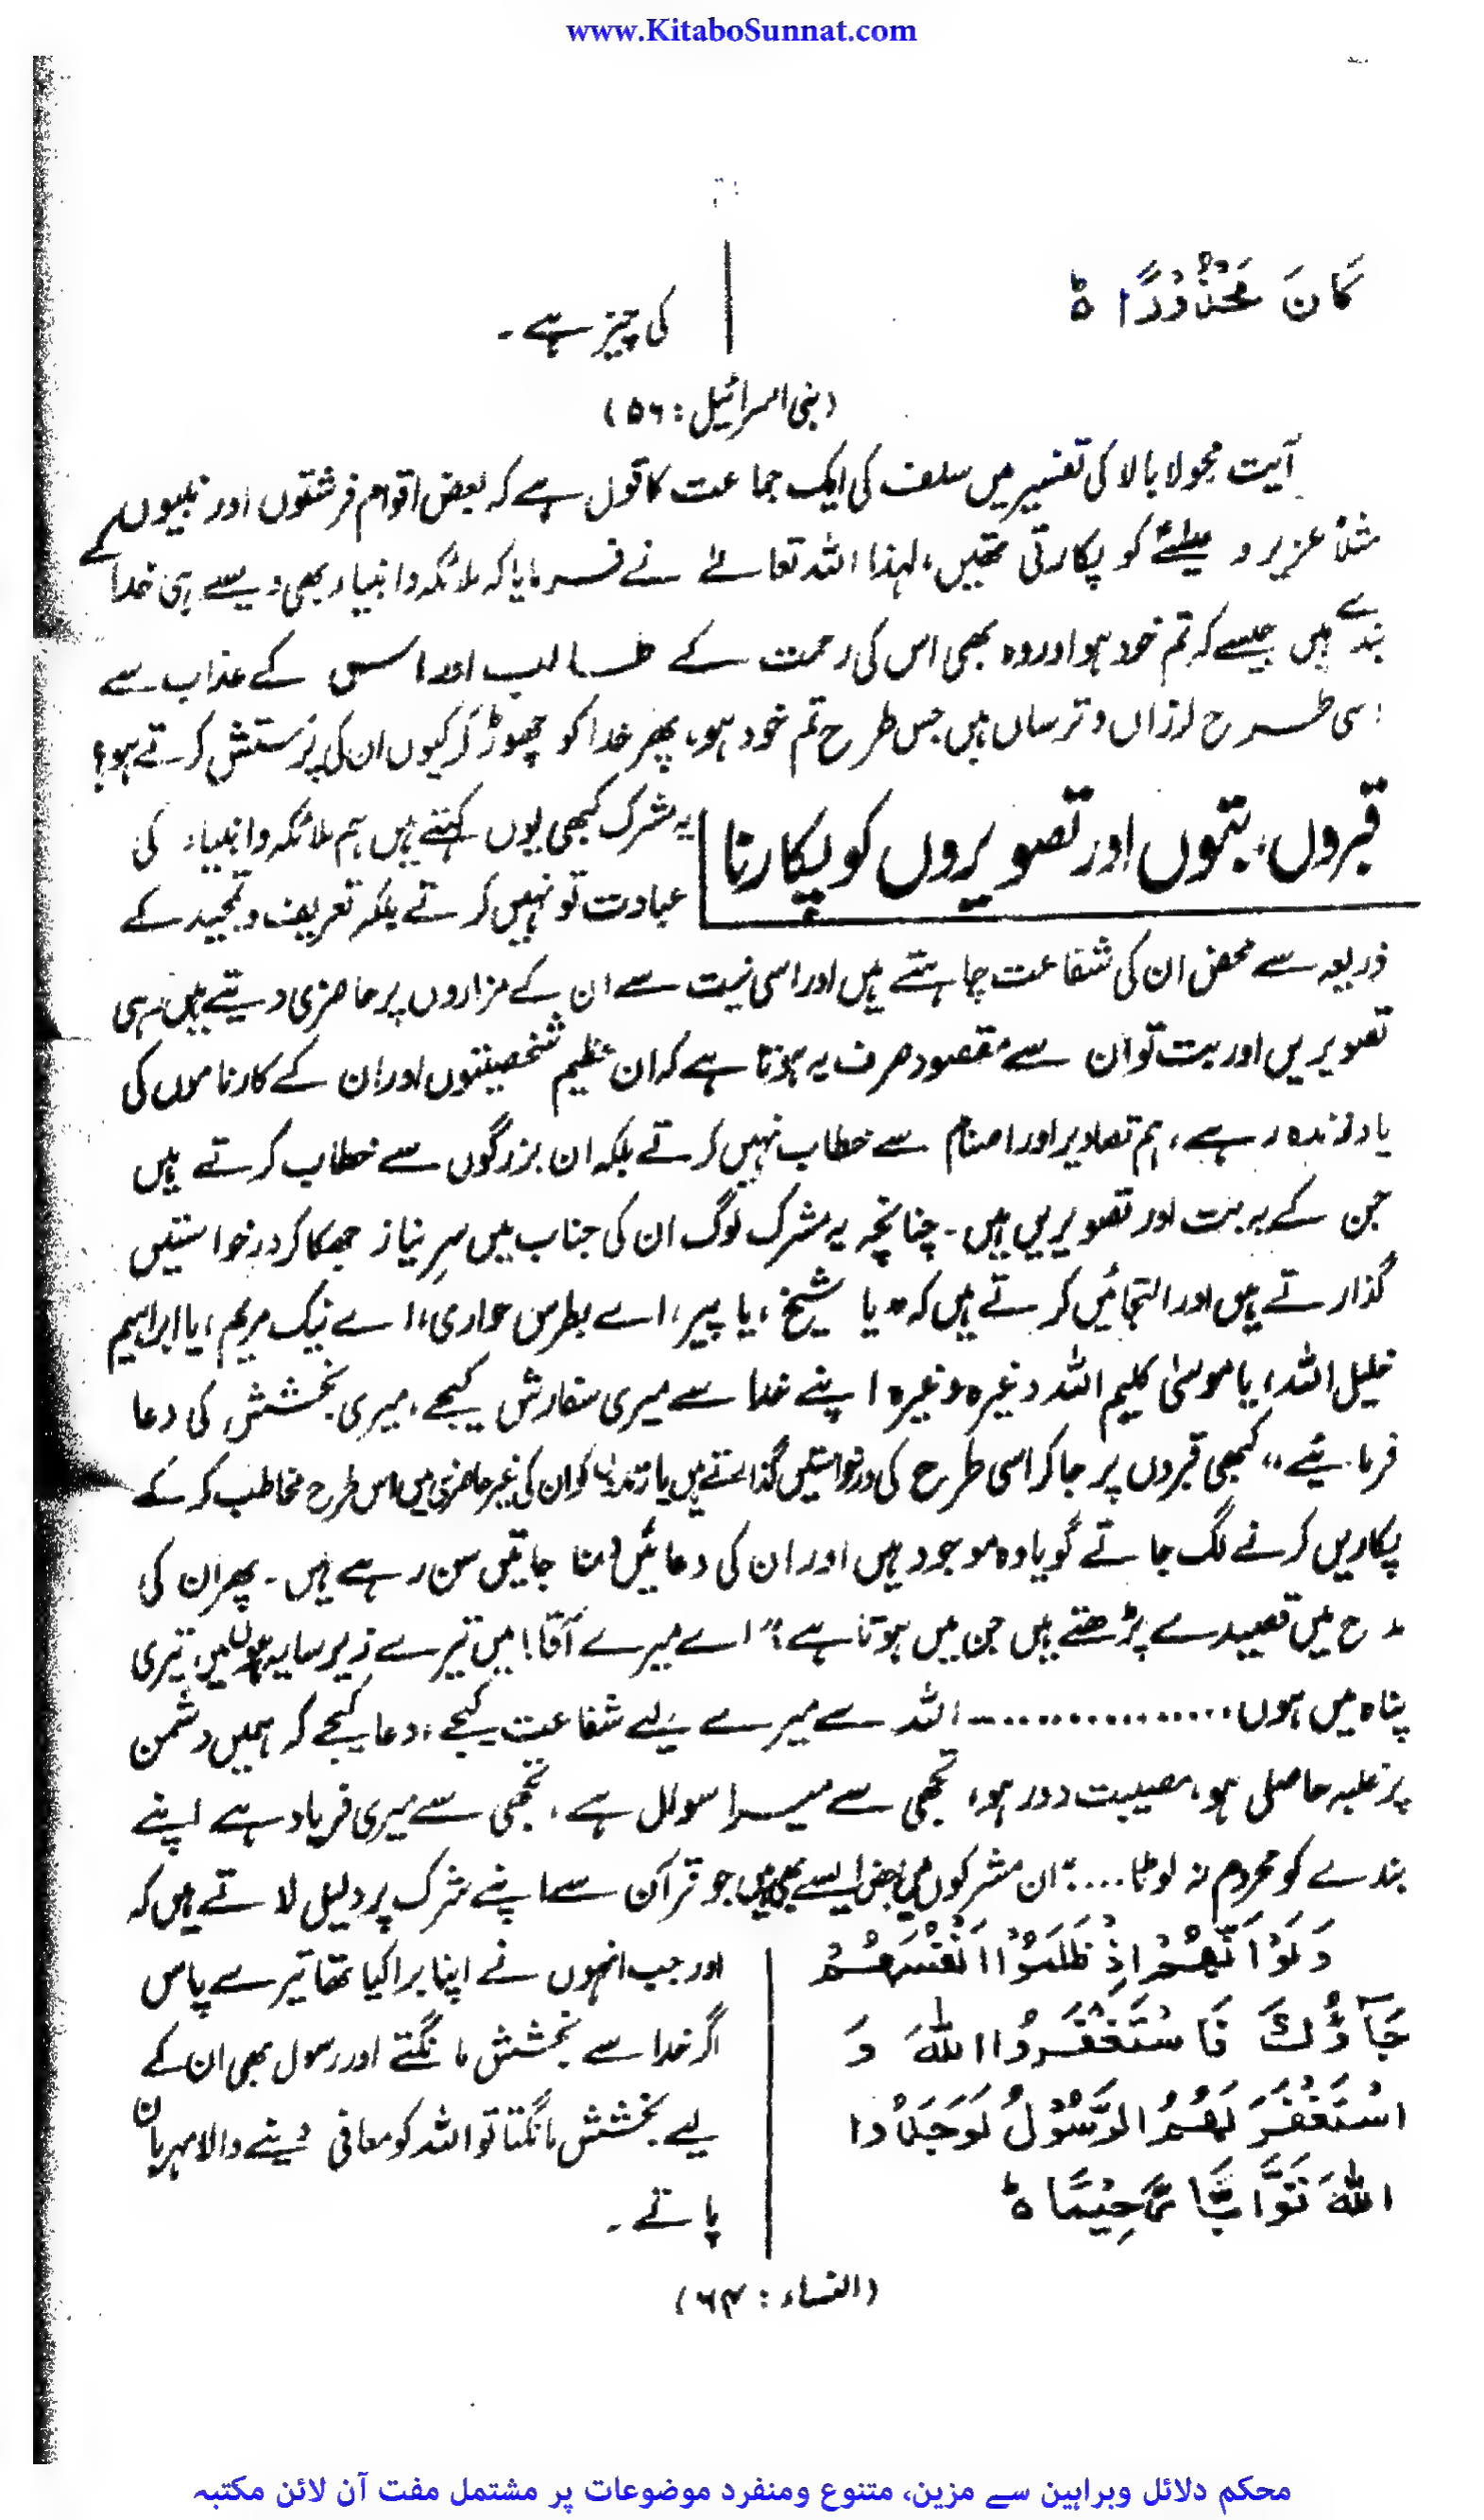 www.KitaboSunnat.com
كَانَ مَحْذُوْرًا ہ
کی چیز ہے۔
(بنی اسرائیل : ۵۶)
آیت محولا بالا کی تفسیر میں سلف کی ایک جماعت کا قول ہے کہ بعض اقوام فرشتوں اور نبیوں
مثلاً عزیر و مسیح کو پکارتی تھیں، لہٰذا اللہ تعالےٰ نے فرمایا کہ ملائکہ و انبیاء بھی ویسے ہی خدا کے
بندے ہیں جیسے کہ تم خود ہو اور وہ بھی اس کی رحمت کے طالب اور اس کے عذاب سے
اسی طرح لرزاں و ترساں ہیں جس طرح تم خود ہو، پھر خدا کو چھوڑ کر کیوں ان کی پرستش کرتے ہو؟
قبروں، بتوں اور تصویروں کو پکارنا
یہ مشرک کبھی یوں کہتے ہیں ہم ملائکہ و انبیاء کی
عبادت تو نہیں کرتے بلکہ تعریف و تمجید کے
ذریعہ سے محض ان کی شفاعت چاہتے ہیں اور اسی نیت سے ان کے مزاروں پر حاضری دیتے ہیں، رہی
تصویریں اور بت تو ان سے مقصود صرف یہ ہوتا ہے کہ ان عظیم شخصیتوں اور ان کے کارناموں کی
یاد زندہ رہے، ہم تصاویر اور اصنام سے خطاب نہیں کرتے بلکہ ان بزرگوں سے خطاب کرتے ہیں
جن کے یہ بت اور تصویریں ہیں۔ چنانچہ یہ مشرک لوگ ان کی جناب میں سرِ نیاز جھکا کر درخواستیں
گذارتے ہیں اور التجائیں کرتے ہیں کہ "یا شیخ، یا پیر، اے بطرس حواری، اے نیک مریم، یا ابراہیم
خلیل اللہ، یا موسیٰ کلیم اللہ وغیرہ وغیرہ اپنے خدا سے میری سفارش کیجے، میری بخشش کی دعا
فرمایئے"، کبھی قبروں پر جا کر اسی طرح کی درخواستیں گذارتے ہیں یا زندوں کو ان کی غیر حاضری میں اس طرح مخاطب کر کے
پکاریں کرنے لگ جاتے گویا وہ موجود ہیں اور ان کی دعائیں مناجاتیں سن رہے ہیں۔ پھر ان کی
مدح میں قصیدے پڑھتے ہیں جن میں ہوتا ہے: "اے میرے آقا! میں تیرے زیر سایہ ہوں، میں تیری
پناہ میں ہوں، ................ اللہ سے میرے لیے شفاعت کیجے، دعا کیجے کہ ہمیں دشمن
پر غلبہ حاصل ہو، مصیبت دور ہو، تجھی سے میرا سوال ہے، تجھی سے میری فریاد ہے اپنے
بندے کو محروم نہ لوٹا...." ان مشرکوں میں بعض ایسے بھی ہیں جو قرآن سے اپنے شرک پر دلیل لاتے ہیں کہ
وَلَوْ اَنَّهُمْ اِذْ ظَلَمُوْا اَنْفُسَهُمْ
جَآءُوْكَ فَاسْتَغْفَرُوا اللّٰهَ وَ
اسْتَغْفَرَ لَهُمُ الرَّسُوْلُ لَوَجَدُوا
اللّٰهَ تَوَّابًا رَّحِيْمًا ہ
اور جب انہوں نے اپنا برا کیا تھا تیرے پاس
اگر خدا سے بخشش مانگتے اور رسول بھی ان کے
لیے بخشش مانگتا تو اللہ کو معافی دینے والا مہربان
پاتے۔
(النساء : ۶۴)
محکم دلائل وبراہین سے مزین، متنوع ومنفرد موضوعات پر مشتمل مفت آن لائن مکتبہ